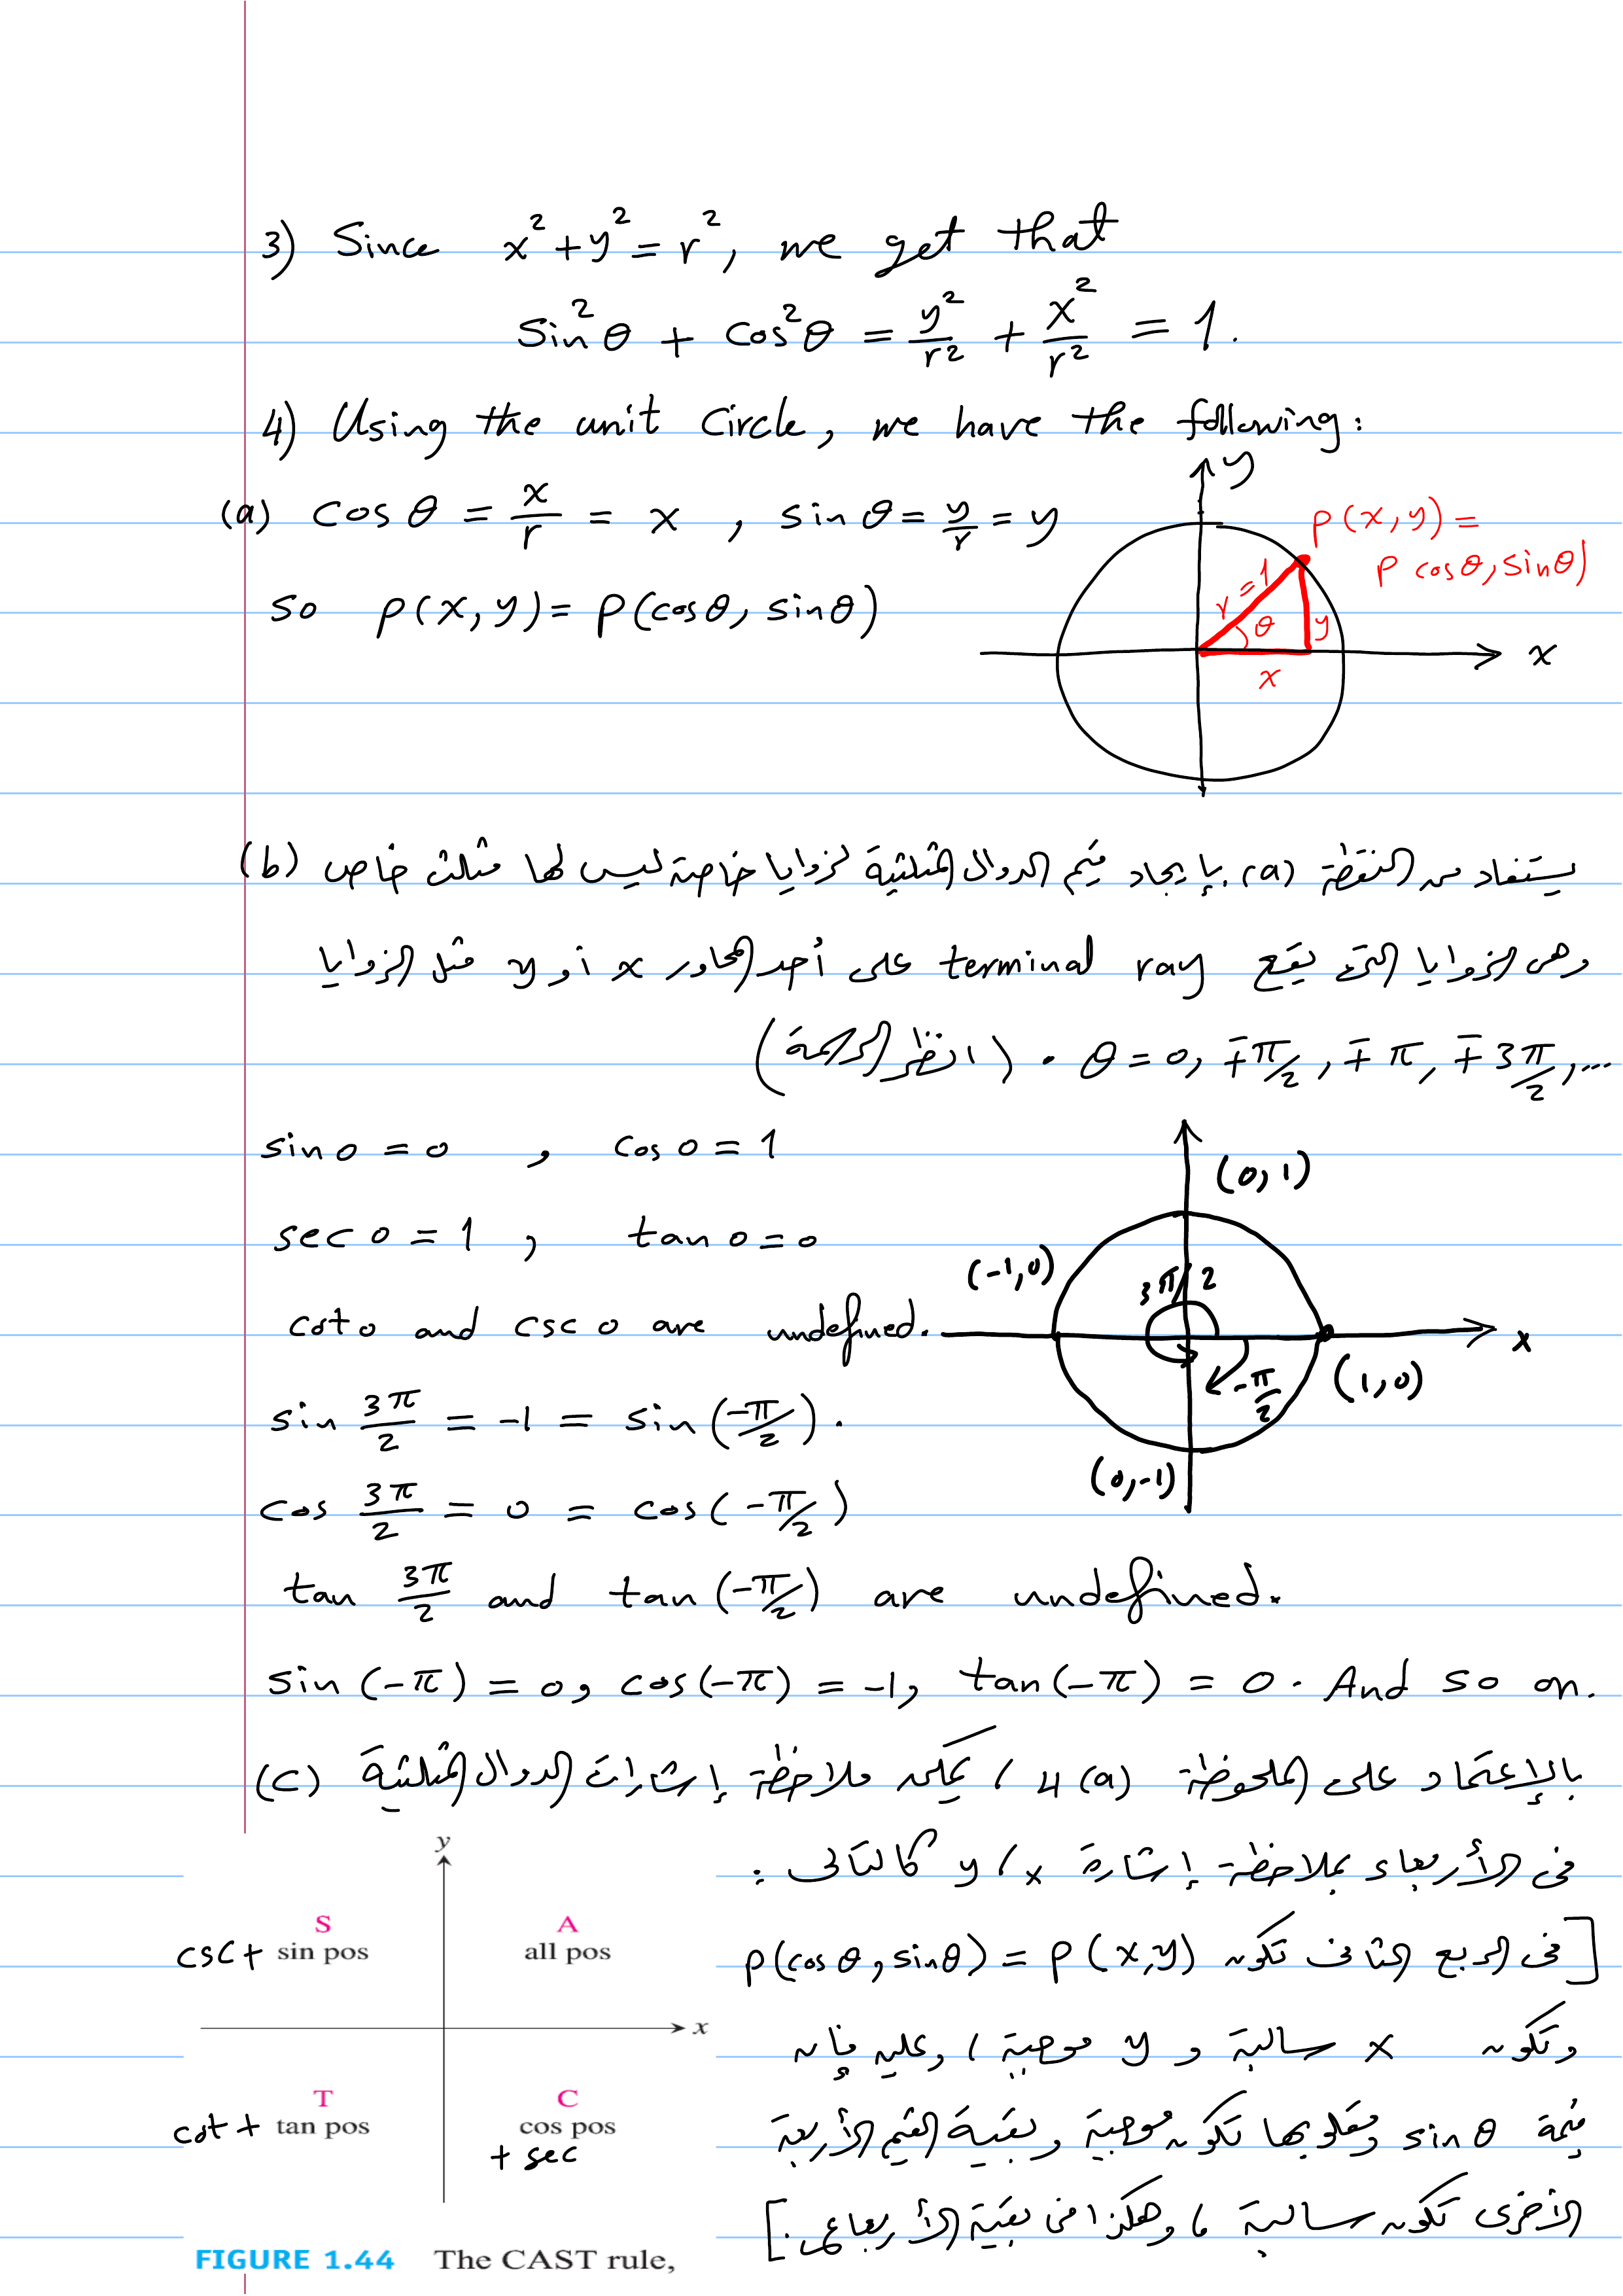 3) Since x² + y² = r², we get that
sin²θ + cos²θ = y²/r² + x²/r² = 1.
4) Using the unit Circle, we have the following:
y
(a) cos θ = x/r = x , sin θ = y/r = y
p(x,y) =
p cosθ, sinθ)
r = 1
θ
y
x
x
so p(x,y) = p(cosθ, sinθ)
(b) يستفاد من النقطة (a) بإيجاد قيم الدوال المثلثية لزوايا خاصة ليس لها مثلث خاص
وهى الزوايا التى يقع terminal ray على أحد المحاور x أو y مثل الزوايا
θ = 0, ∓π/2, ∓π, ∓3π/2, ... . (انظر الرسمة)
sin 0 = 0 , cos 0 = 1
(0,1)
sec 0 = 1 , tan 0 = 0
(-1,0)
3π/2
cot 0 and csc 0 are undefined.
x
-π/2
(1,0)
sin 3π/2 = -1 = sin(-π/2).
(0,-1)
cos 3π/2 = 0 = cos(-π/2)
tan 3π/2 and tan(-π/2) are undefined.
sin(-π) = 0, cos(-π) = -1, tan(-π) = 0. And so on.
(c) بالإعتماد على الملحوظة 4(a) ، يمكن ملاحظة إشارات الدوال المثلثية
فى الأرباع بملاحظة إشارة x ، y كالتالى :
[فى الربع الثانى تكون p(x,y) = p(cosθ, sinθ)
وتكون x سالبة و y موجبة ، وعليه فإن
قيمة sin θ ومقلوبها تكون موجبة وبقية القيم الأربعة
الأخرى تكون سالبة ، وهكذا فى بقية الأرباع.]
y
S
A
csc + sin pos
all pos
x
T
C
cot + tan pos
cos pos
+ sec
FIGURE 1.44 The CAST rule,